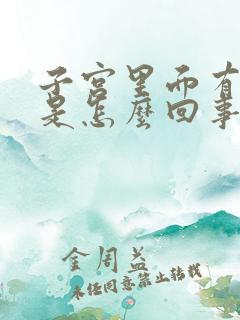 子宫里而有
是怎麽回事
金周益
未经同意禁止转载